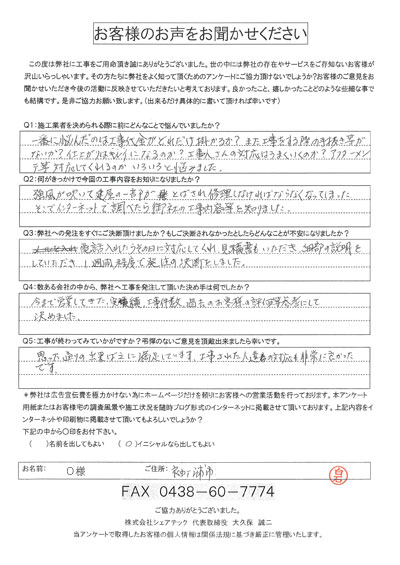 お客様のお声をお聞かせください
この度は弊社に工事をご用命頂き誠にありがとうございました。世の中には弊社の存在やサービスをご存知ないお客様が
沢山いらっしゃいます。その方たちに弊社をよく知って頂くためのアンケートにご協力頂けないでしょうか?お客様のご意見をお
聞かせいただき今後の活動に反映させていただきたいと考えております。良かったこと、嬉しかったことどのような些細な事で
も結構です。是非ご協力お願い致します。(出来るだけ具体的に書いて頂ければ幸いです)
Q1:施工業者を決められる際に前にどんなことで悩んでいましたか?
一番に悩んだのは工事代金がどれだけ掛かるか?また工事をする際の手抜き等が
ないか?仕上がりはきれいになるのか?工事人さんの対応はうまくいくのか?アフターメン
テ等対応してくれるのか いろいろと悩みました。
Q2:何がきっかけで今回の工事内容をお知りになりましたか?
強風が吹いて建屋の一部が飛ばされ修理しなければならなくなってしまった
そこでインターネットで調べたら御社の工事内容等を知りました。
Q3:弊社への発注をすぐに決断頂けましたか?もしご決断されなかったとしたらどんなことが不安になりましたか?
電話入れたらその日に対応してくれ、見積書もいただき、細部の説明を
していただき1週間程度で発注の決断をしました。
Q4:数ある会社の中から、弊社へ工事を発注して頂いた決め手は何でしたか?
今まで営業してきた、実績、工事件数、過去のお客様の評価等参考にして
決めました。
Q5:工事が終わってみていかがですか?弔悼のないご意見を頂戴出来ましたら幸いです。
思った通りの出来ばえに満足しています。工事された人達の対応も非常に良かった
です。
*弊社は広告宣伝費を極力かけない為にホームページだけを頼りにお客様への営業活動を行っております。本アンケート
用紙またはお客様宅の調査風景や施工状況を随時ブログ形式のインターネットに掲載させて頂いております。上記内容をイ
ンターネットや印刷物に掲載させて頂いてもよろしいでしょうか?
下記の中から〇印をお付下さい。
( )名前を出してもよい (〇)イニシャルなら出してもよい
お名前: O様 ご住所: 袖ケ浦市
FAX 0438-60-7774
ご協力ありがとうございました。
株式会社シェアテック 代表取締役 大久保 誠二
当アンケートで取得したお客様の個人情報は関係法規に基づき厳正に管理いたします。